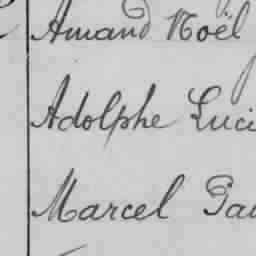 Amand Noël
Adolphe Luci
Marcel Pau